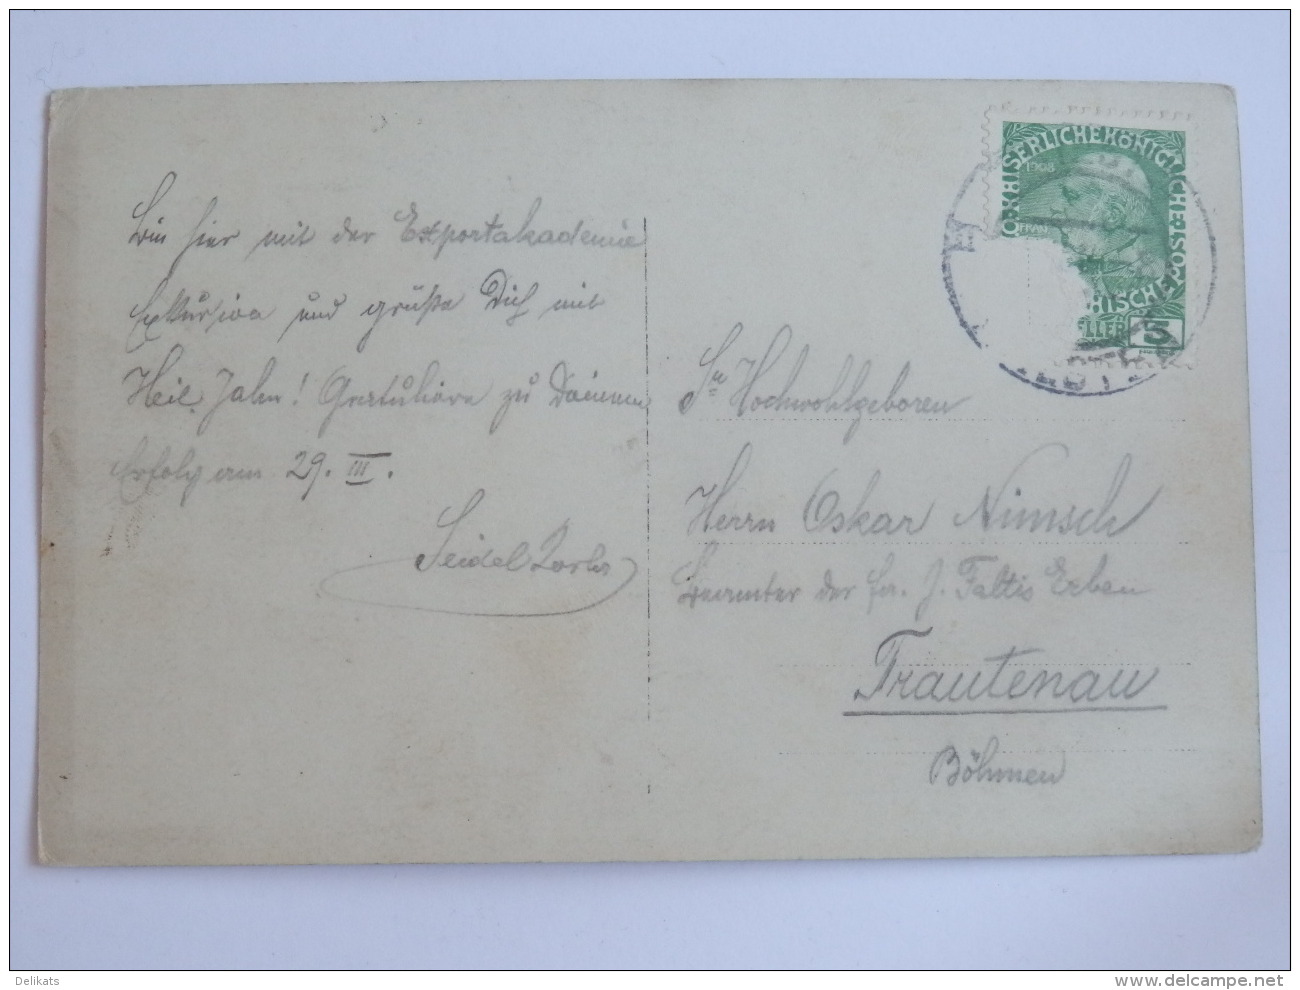 Bin hier mit der Exportakademie
Exkursion und grüße Dich mit
Heil Jahn! Gratuliere zu Deinem
Erfolg am 29. III.
Seidel
KAISERLICHE KÖNIGLICHE
1908
POST
5
Sr Hochwohlgeboren
Herrn Oskar Nimsch
Beamter der fa. J. Faltis Erben
Trautenau
Böhmen
Delikats
www.delcampe.net